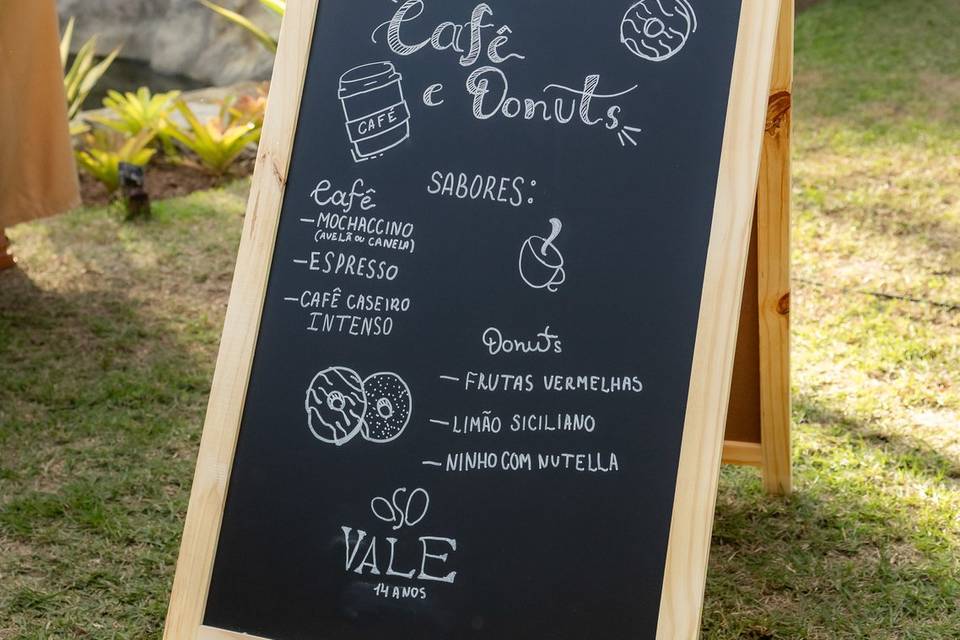 Café
e Donuts
CAFÉ
SABORES:
Café
- MOCHACCINO
(AVELÃ OU CANELA)
- ESPRESSO
- CAFÉ CASEIRO
INTENSO
Donuts
- FRUTAS VERMELHAS
- LIMÃO SICILIANO
- NINHO COM NUTELLA
VALE
14 ANOS